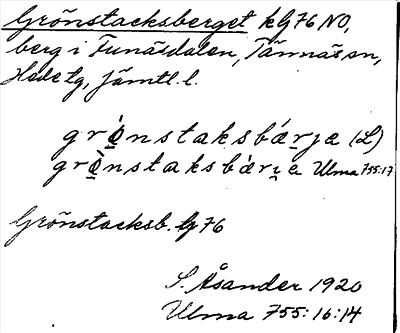 Grönstacksberget kg 76 NO,
berg i Funäsdalen, Tännäs sn,
Hede tg, Jämtl. l.
grọ̀nstaksbærja (L)
grọ̀nstaksbærja Ulma 755:17
Grönstacksb. kg 76
S. Åsander 1920
Ulma 755:16:14